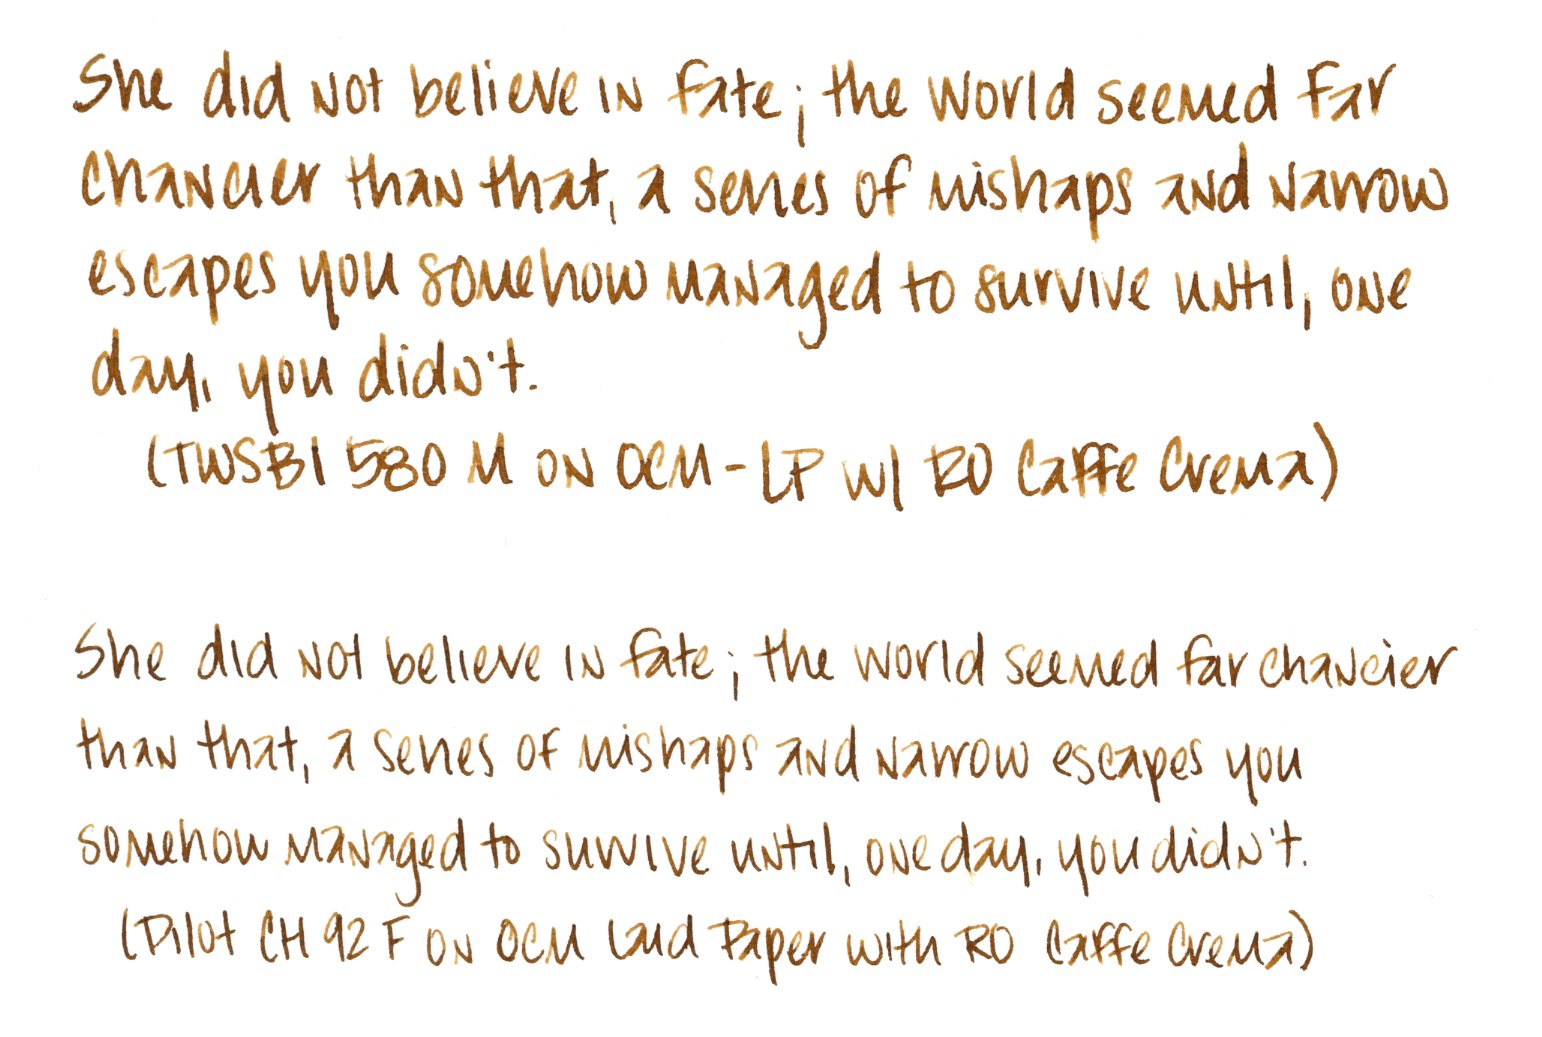 She did not believe in fate; the world seemed far
chancier than that, a series of mishaps and narrow
escapes you somehow managed to survive until, one
day, you didn't.
(TWSBI 580 M on OCM-LP w/ RO Caffe Crema)
She did not believe in fate; the world seemed far chancier
than that, a series of mishaps and narrow escapes you
somehow managed to survive until, one day, you didn't.
(Pilot CH 92 F on OCM Laid Paper with RO Caffe Crema)